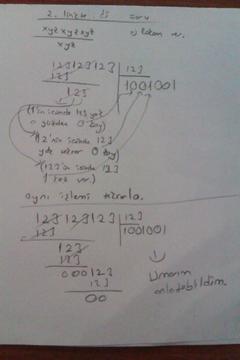 2. linkte di soru
xyz xyz xyz
xyz
123 123 123 | 123
123
1001001
123
(1'in içinde 123 yok
o yüzden 0 koy)
(12'nin içinde 123
yok tekrar 0 koy)
(123'ün içinde 123
1 kez var.)
aynı işlemi tekrarla.
123 123 123 | 123
123
1001001
123
123
000123
123
00
Umarım
anlatabildim.